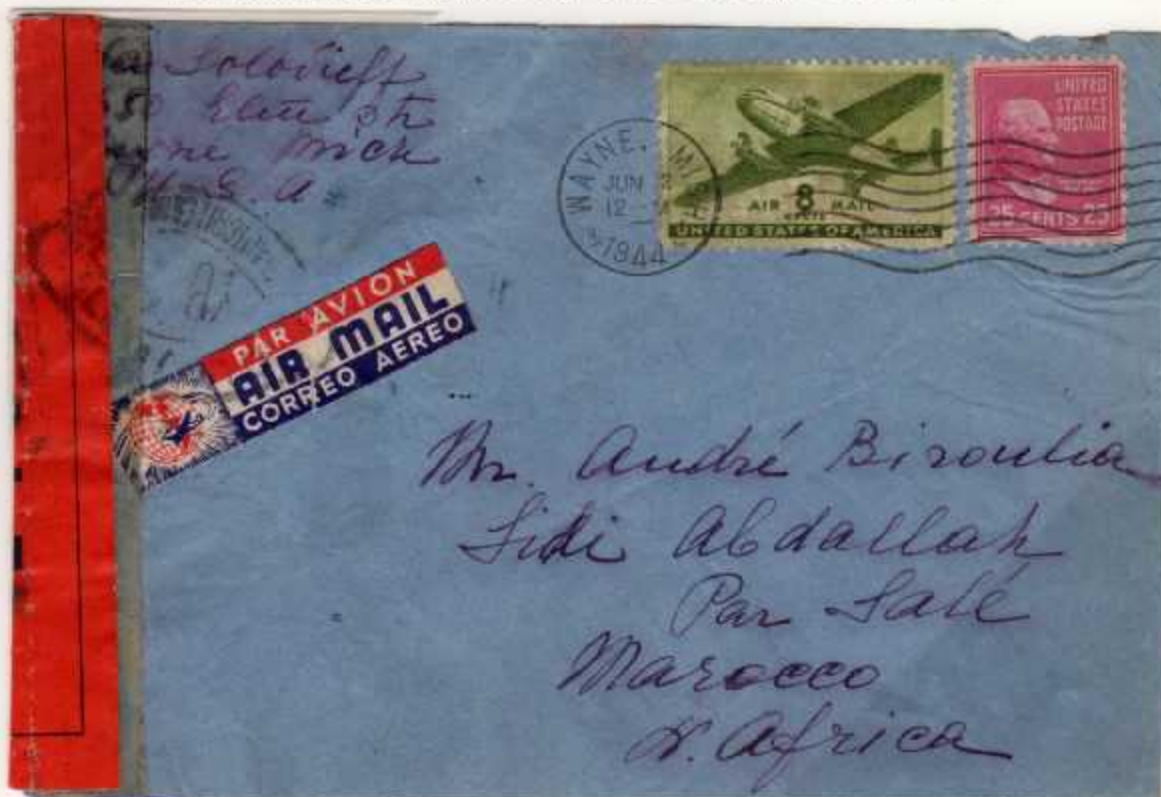 Solovieff
50 Elm str
Wayne Mich
U.S.A.
WAYNE, MICH.
JUN
12
1944
AIR 8 MAIL
CENTS
UNITED STATES OF AMERICA
UNITED
STATES
POSTAGE
25 CENTS 25
PAR AVION
AIR MAIL
CORREO AEREO
Mr. André Biroulia
Sidi Abdallah
Par Salé
Marocco
N. Africa